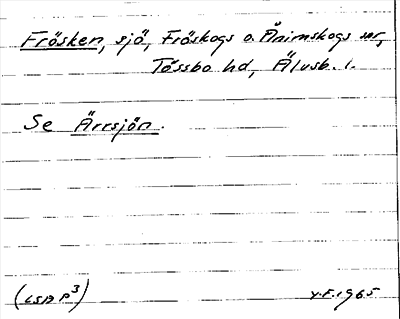 Frösken, sjö, Fröskogs o. Ånimskogs snr,
Tössbo hd, Älvsb. l.
Se Ärrsjön.
(LSA P3)
Y.F. 1965